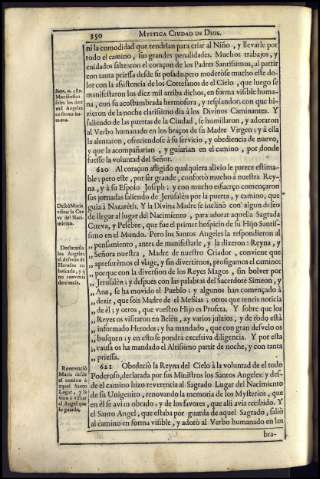 350
MYSTICA CIUDAD DE DIOS.
ni la comodidad que tendrian para criar al Niño, y llevarle por
todo el camino, sin grandes penalidades. Muchos trabajos, y
cuidados saltean el coraçon de los Padres Santissimos, al partir
con tanta priessa desde su posada; pero moderòse mucho este do-
lor con la assistencia de los Cortesanos de el Cielo, que luego se
manifestaron los diez mil arriba dichos, en forma visible huma-
na, con su acostumbrada hermosura, y resplandor, con que hi-
zieron de la noche clarissimo dia à los Divinos Caminantes. Y
saliendo de las puertas de la Ciudad, se humillaron, y adoraron
al Verbo humanado en los braços de su Madre Virgen; y à ella
la alentaron, ofreciendose à su servicio, y obediencia de nuevo,
y que la acompañarian, y guiarian en el camino, por donde
fuesse la voluntad del Señor.
620 Al coraçon afligido qualquiera alivio le parece estima-
ble; pero este, por ser grande, confortò mucho à nuestra Rey-
na, y à su Esposo Joseph: y con mucho esfuerço començaron
sus jornadas saliendo de Jerusalèn por la puerta, y camino, que
guia à Nazareth. Y la Divina Madre se inclinò con algun deseo
de llegar al lugar del Nacimiento, para adorar aquella Sagrada
Cueva, y Pesebre, que fue el primer hospicio de su Hijo Santis-
simo en el Mundo. Pero los Santos Angeles la respondieron al
pensamiento, antes de manifestarle, y la dixeron: Reyna, y
Señora nuestra, Madre de nuestro Criador, conviene que
apresuremos el viage, y sin divertirnos, prosigamos el camino;
porque con la diversion de los Reyes Magos, sin bolver por
Jerusalèn; y despues con las palabras del Sacerdote Simeon, y
Ana, se ha movido el Pueblo: y algunos han començado à
dezir, que sois Madre del Messias; otros que teneis noticia
de èl; y otros, que vuestro Hijo es Profeta. Y sobre que los
Reyes os visitaron en Belèn, ay varios juizios; y de todo està
informado Herodes; y ha mandado, que con gran desvelo os
busquen; y en esto se pondrà excessiva diligencia. Y por esta
causa os ha mandado el Altissimo partir de noche, y con tanta
priessa.
621 Obedeciò la Reyna del Cielo à la voluntad de el todo
Poderoso, declarada por sus Ministros los Santos Angeles; y des-
de el camino hizo reverencia al Sagrado Lugar del Nacimiento
de su Unigenito, renovando la memoria de los Mysterios, que
en èl se avia obrado; y de los favores, que alli avia recibido. Y
el Santo Angel, que estaba por guarda de aquel Sagrado, saliò
al camino en forma visible, y adorò al Verbo humanado en los
bra-